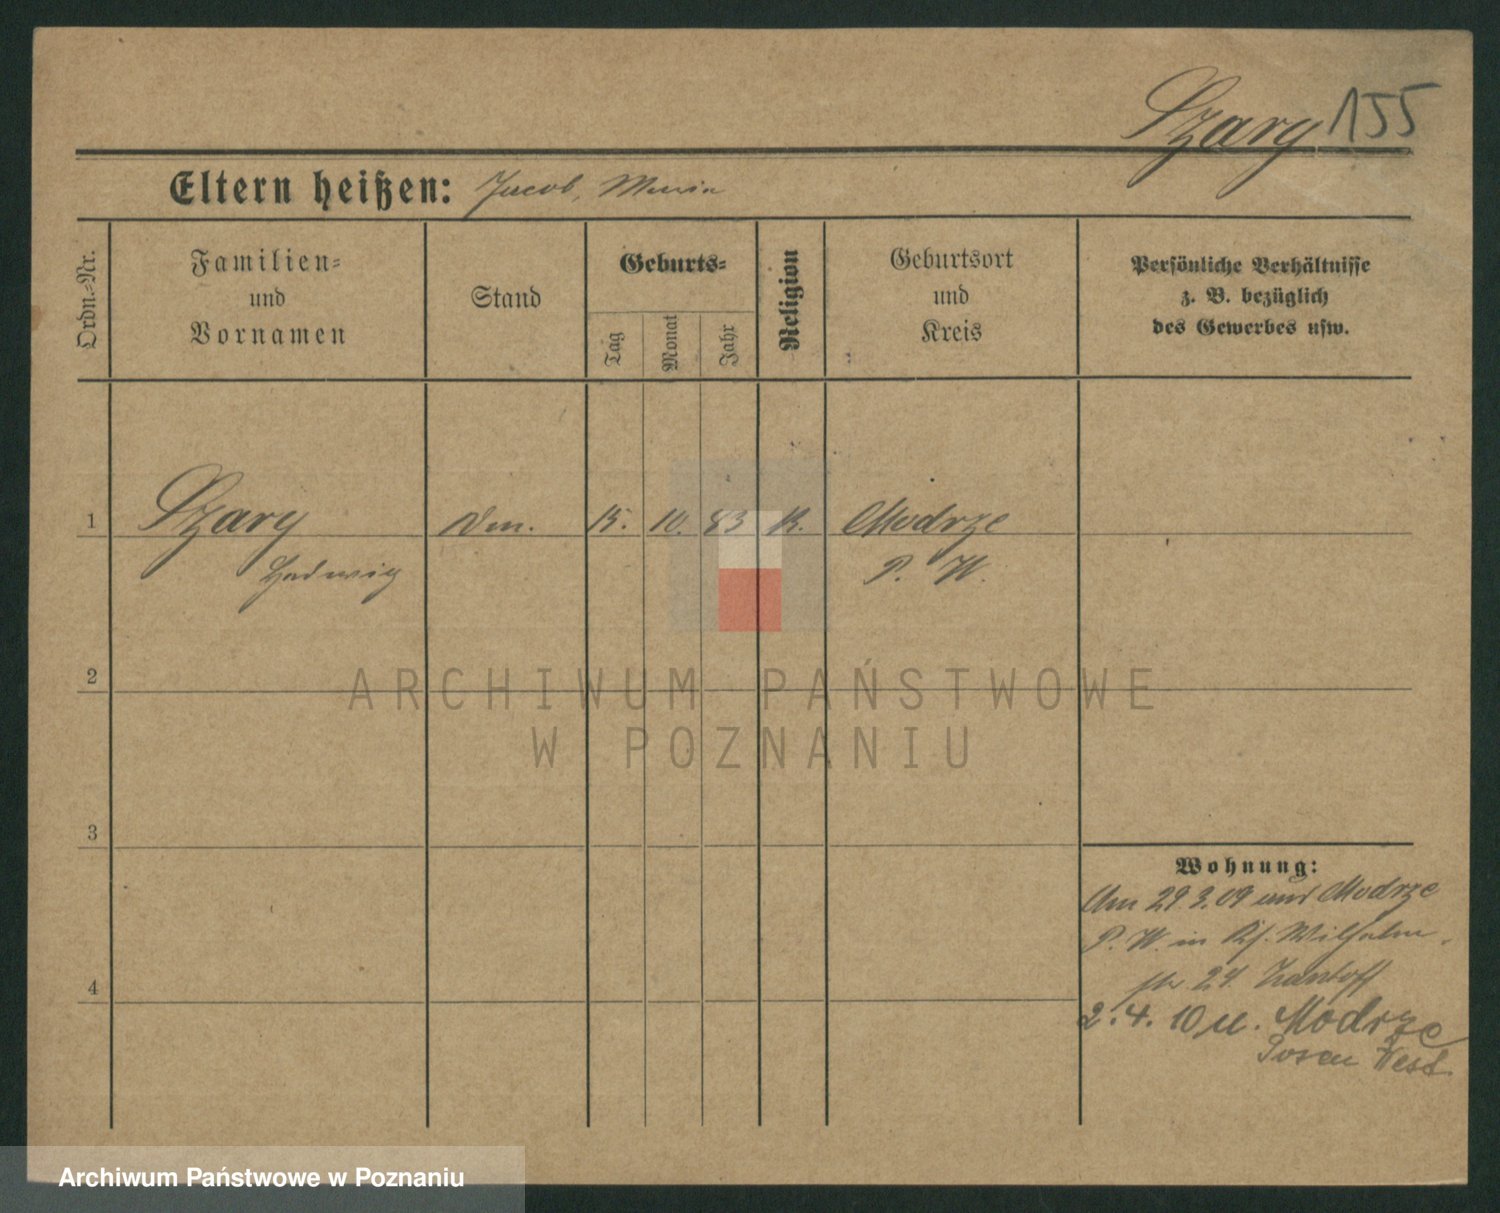 Szary 155
Eltern heißen: Jacob, Maria
Ordn.=Nr.
Familien=
und
Vornamen
Stand
Geburts=
Tag
Monat
Jahr
Religion
Geburtsort
und
Kreis
Persönliche Verhältnisse
z. B. bezüglich
des Gewerbes usw.
1 Szary 15. 10. 83 K. Modrze
Hedwig P. W.
2
ARCHIWUM PAŃSTWOWE
W POZNANIU
3
Wohnung:
Am 29.3.09 aus Modrze
P. W. in Wilhelm
str 24
4
2. 4. 10 u. Modrze
Posen West
Archiwum Państwowe w Poznaniu